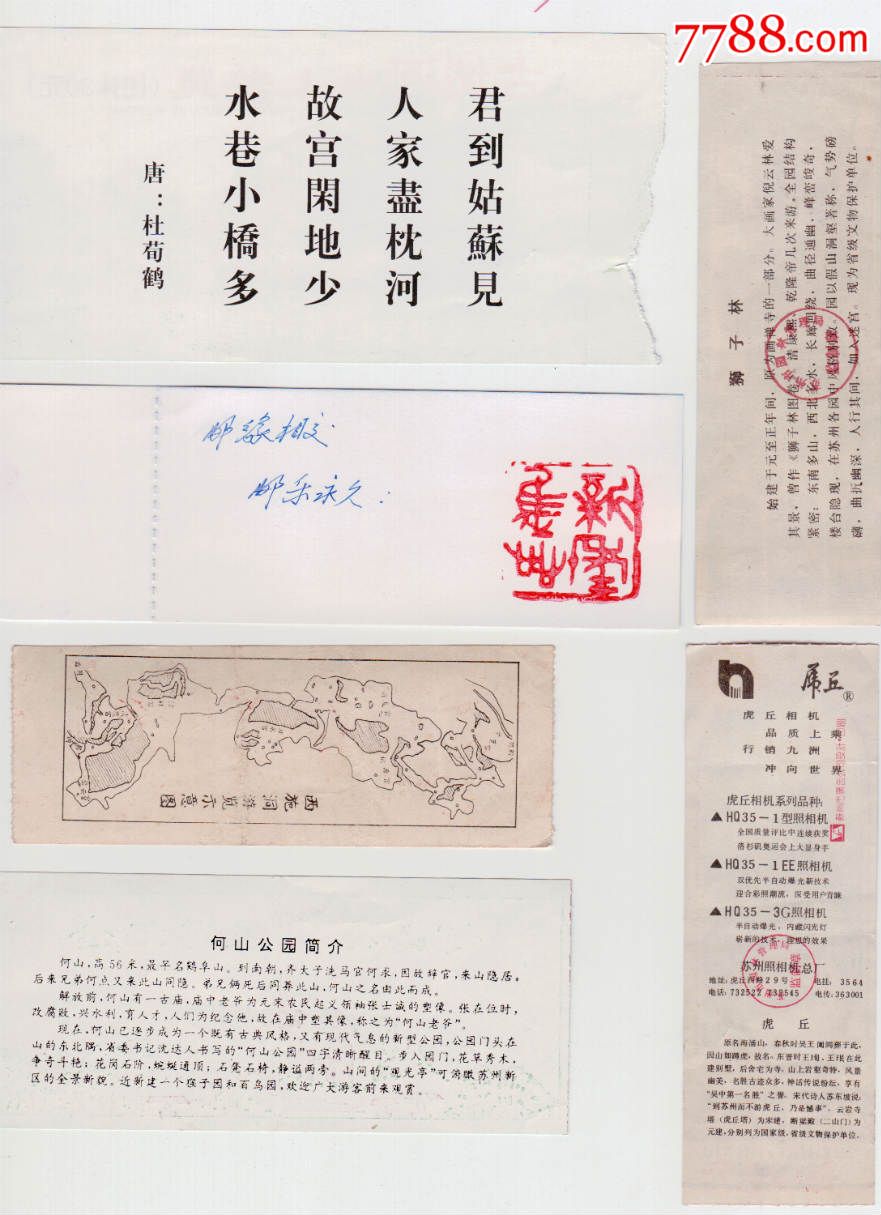 7788.com
君到姑蘇見
人家盡枕河
故宮閑地少
水巷小橋多
唐：杜荀鹤
邮缘相交
邮乐永久
狮子林
始建于元至正年间，原为画禅寺的一部分。大画家倪云林爱
其景，曾作《狮子林图卷》，清康熙、乾隆帝几次来游。全园结构
紧密：东南多山，西北多水，长廊回绕，曲径通幽，峰峦峻奇，
楼台隐现，在苏州各园中风格别致。园以假山洞壑著称，气势磅
礴，曲折幽深，人行其间，如入迷宫。现为省级文物保护单位。
西施洞游览示意图
何山公园简介
何山，高56米，最早名鹤阜山。到南朝，齐太子洗马官何求，因故辞官，来山隐居。
后来兄弟何点又来此山同隐。弟兄俩死后同葬此山，何山之名由此而成。
解放前，何山有一古庙，庙中老爷为元末农民起义领袖张士诚的塑像。张在位时，
改腐败，兴水利，育人才，人们为纪念他，故在庙中塑其像，称之为“何山老爷”。
现在，何山已逐步成为一个既有古典风格，又有现代气息的新型公园，公园门头在
山的东北隅，省委书记沈达人书写的“何山公园”四字清晰醒目。步入园门，花草秀木，
争奇斗艳；花岗石阶，蜿蜒通顶；石凳石椅，静谧两旁。山间的“观光亭”可浏瞰苏州新
区的全景新貌。近新建一个猴子园和百鸟园，欢迎广大游客前来观赏。
虎丘®
虎丘相机
品质上乘
行销九洲
冲向世界
虎丘相机系列品种：
▲HQ35－1型照相机
全国质量评比中连续获奖
洛杉矶奥运会上大显身手
▲HQ35－1EE照相机
双优先半自动曝光新技术
迎合彩照潮流，深受用户青睐
▲HQ35－3G照相机
半自动曝光，内藏闪光灯
崭新的技术，理想的效果
苏州照相机总厂
地址：虎丘西路29号 电挂：3564
电话：732522 732545 电传：363001
虎丘
原名海涌山，春秋时吴王阖闾葬于此，
因山如蹲虎，故名。东晋时王珣、王珉在此
建别墅，后舍宅为寺。山上岩壑奇特，风景
幽美，名胜古迹众多，神话传说纷纭，享有
“吴中第一名胜”之誉，宋代诗人苏东坡说：
“到苏州而不游虎丘，乃是憾事”。云岩寺
塔（虎丘塔）为宋建，断梁殿（二山门）为
元建，分别列为国家级，省级文物保护单位。